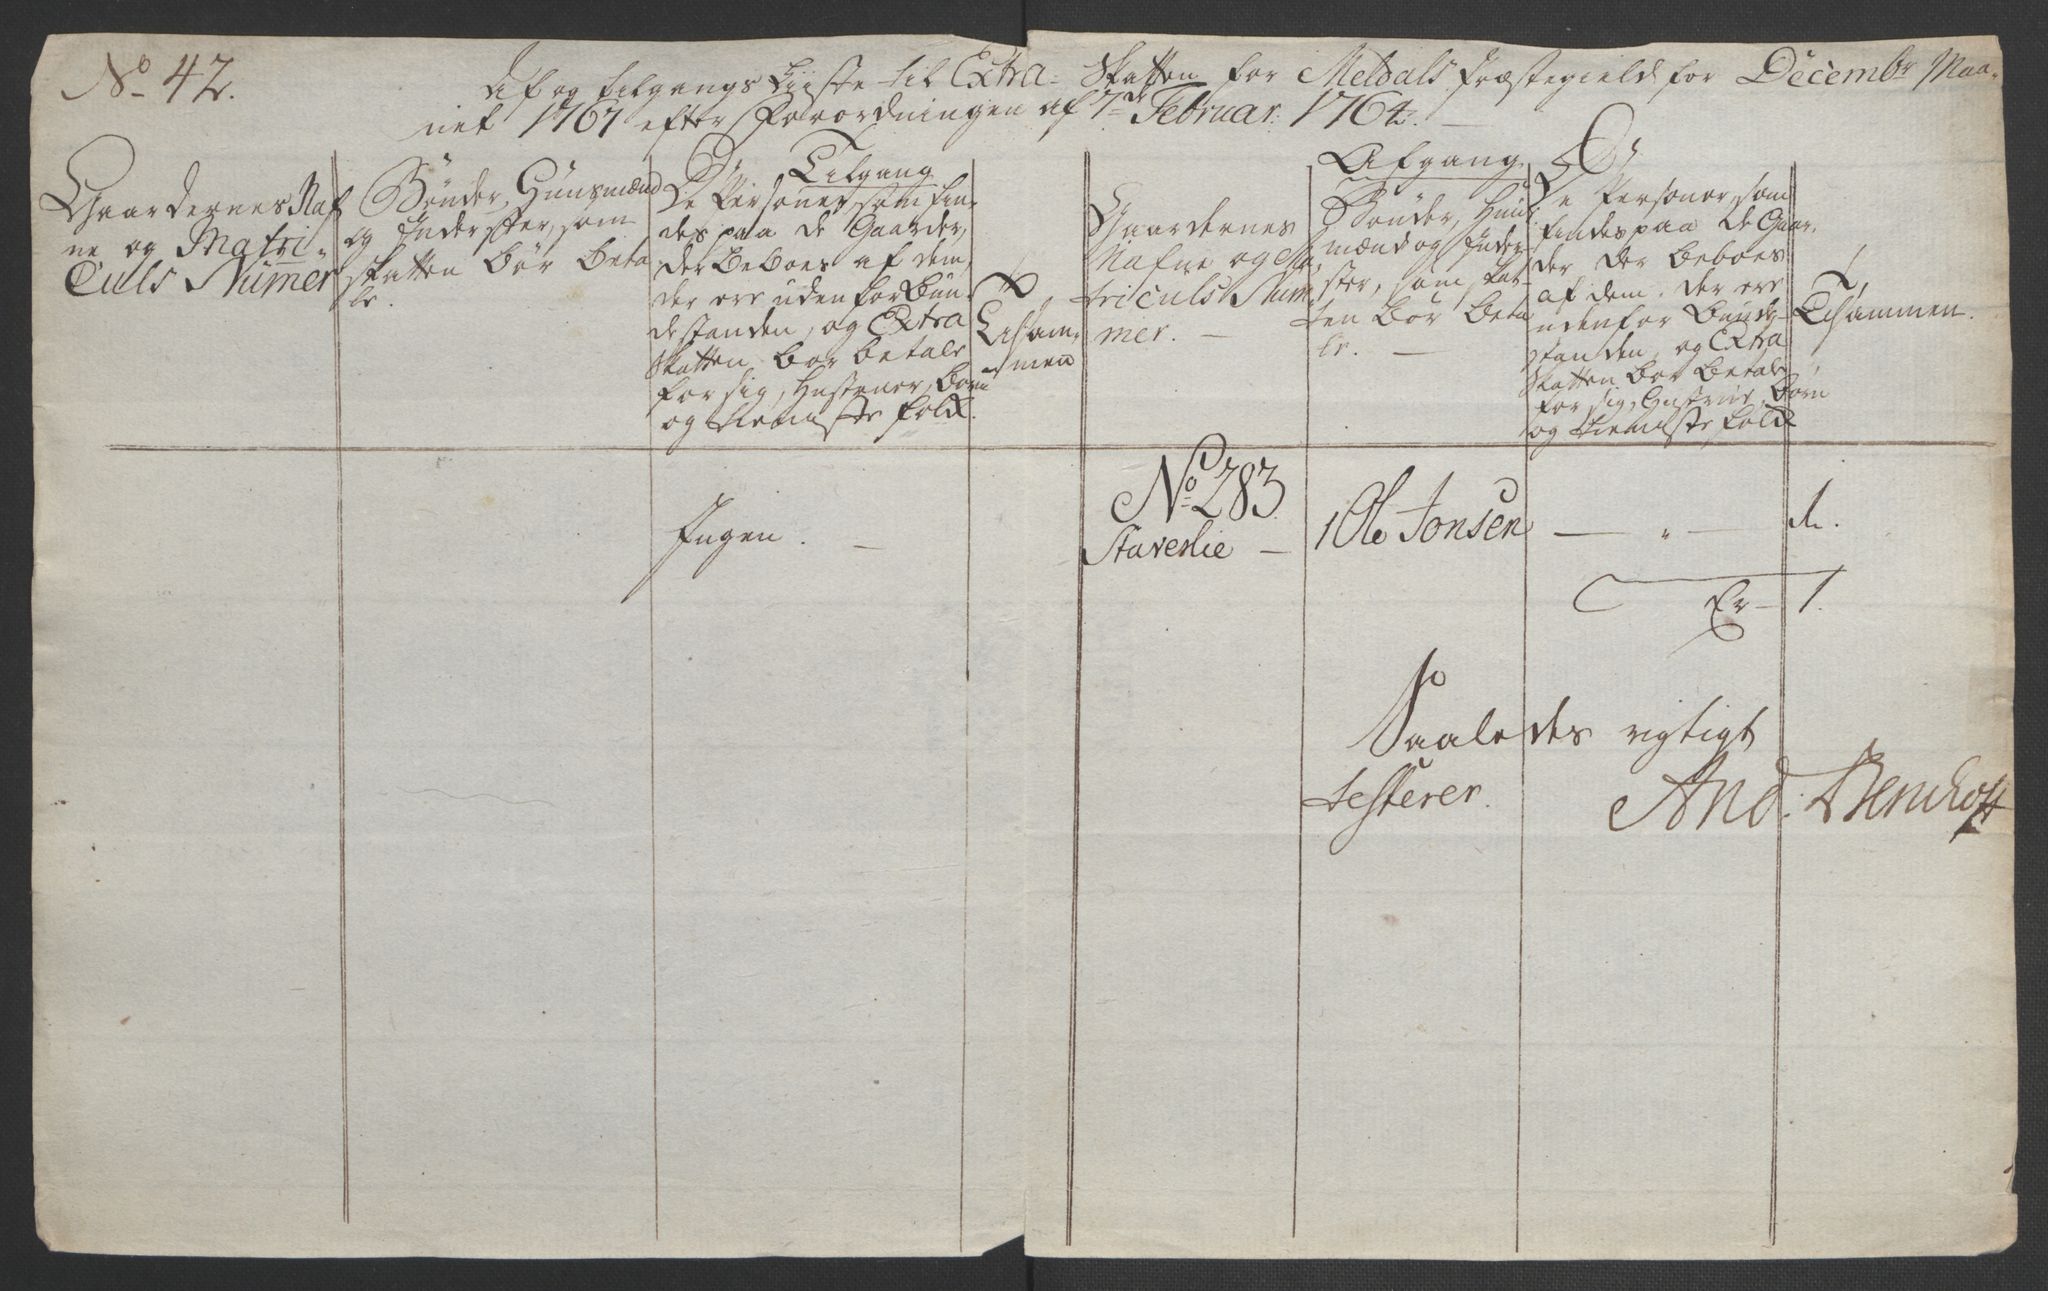 No 42.
Af og tilgangs Liiste til Extra-Skatten for Meldals Præstegield for Decembr Maa-
net 1767 efter Forordningen af 7de Februar: 1764. —
Gaardernes Naf
ne og Matri-
Culs Numer
Bönder, Huusmænd
og Inderster, som
skatten bør beta
le.
Tilgang
De Personer som fin-
des paa de Gaarder,
der beboes af dem,
der ere uden for Bon-
destanden, og Extra
Skatten bør betale
for sig, Hustruer, børn
og tieniste folk.
Tilsam-
men
Gaardernes
Nafne og Ma
triculs Num
mer. —
Afgang
Bönder, Huus
mænd og Inder-
ster, som skat-
ten bør beta
le. —
De Personer, som
findes paa de Gaar-
der der beboes
af dem, der ere
uden for Bonde-
standen, og Extra
Skatten bør betale
for sig, Hustrue, børn
og tieniste folk
Tilsammen.
Ingen. —
No 283
Staverlie — 1 Ole Jonsen — " — 1.
Er — 1.
Saaledes rigtigt
testerer. And.